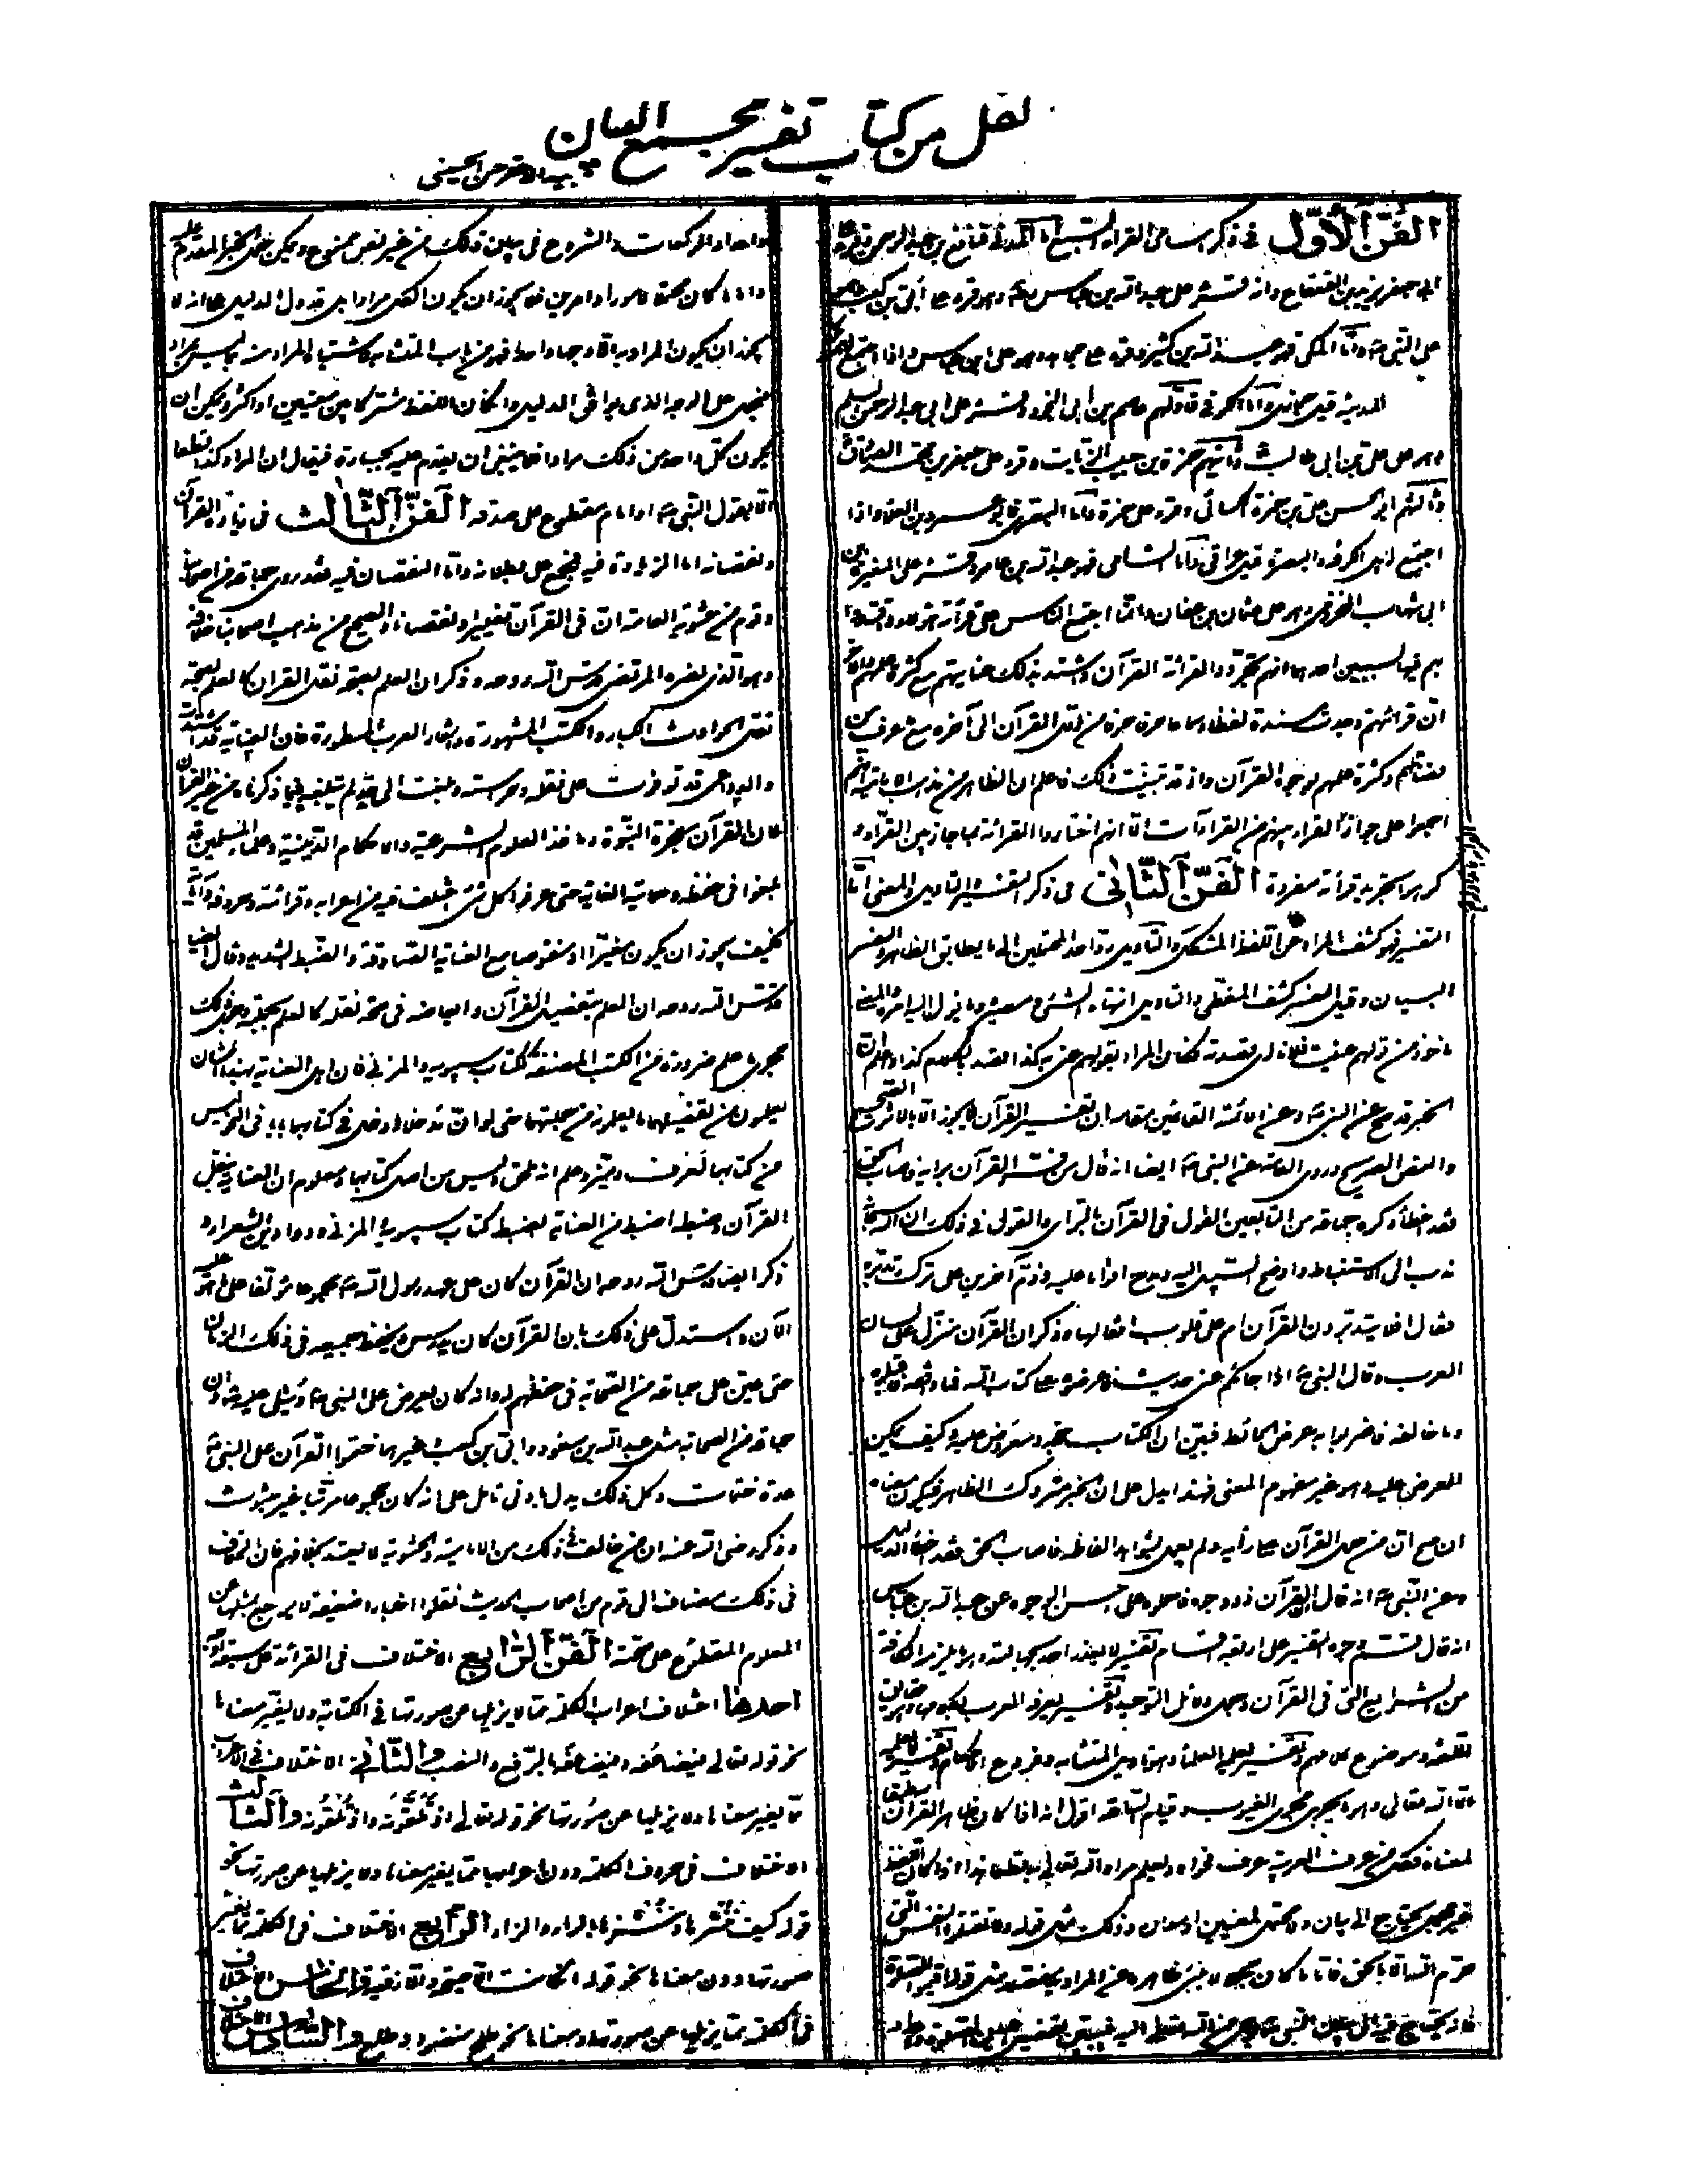 نقل من كتاب تفسير مجمع البيان
الفن الأول في ذكر اسامي القراء السبع اما المدني فنافع بن عبد الرحمن قرء على
ابي جعفر يزيد بن القعقاع وانه قرء على عبد الله بن عباس وهو قرء على ابي بن كعب وهو
على النبي واما المكي فهو عبد الله بن كثير وقرء على مجاهد وهو على ابن عباس واذا اجتمع اهل
المدينة قيل حجازي واما الكوفي فاولهم عاصم بن ابي النجود قرء على ابي عبد الرحمن السلمي
وهو على علي بن ابي طالب وثانيهم حمزة بن حبيب الزيات وقرء على جعفر بن محمد الصادق
وثالثهم ابو الحسن علي بن حمزة الكسائي وقرء على حمزة واما البصري فابو عمرو بن العلا واذا
اجتمع اهل الكوفة والبصرة قيل عراقي واما الشامي فهو عبد الله بن عامر وقرء على المغيرة بن
ابي شهاب المخزومي وهو على عثمان بن عفان وانما اجتمع الناس على قرائة هؤلاء واقتدوا
بهم فيها لسببين احدهما انهم تجردوا لقرائة القرآن واشتد بذلك عنايتهم مع كثرة علمهم والآخر
ان قرائتهم وجدت مسندة لفظا وسماعا حرفا حرفا من اول القرآن الى آخره مع ما عرف من
فضائلهم وكثرة علمهم بوجوه القرآن واذ قد تبينت ذلك فاعلم ان الظاهر من مذهب الامامية انهم
اجمعوا على جواز القراءة بينهم من القراآت الا انهم اختاروا القرائة بما جاز بين القراء و
كرهوا تجريد قرأئة مفردة الفن الثاني في ذكر التفسير والتاويل والمعنى اما
التفسير فهو كشف المراد عن اللفظ المشكل والتاويل رد احد المحتملين الى ما يطابق الظاهر والتفسير
البيان وقيل التفسير كشف المغطى والتاويل انتهاء الشئ ومصيره وما يؤل اليه امره والمعنى
ماخوذ من قولهم عنيت فلانا اي قصدته فكان المراد بقولهم عنى به كذا اقصد بالكلام كذا واعلم ان
الخبر قد صح عن النبي وعن الائمة القائمين مقامه ان تفسير القرآن لا يجوز الا بالاثر الصحيح
والنص الصريح وروى العامة عن النبي ايضا انه قال من فسر القرآن برايه فاصاب الحق
فقد اخطأ وكره جماعة من التابعين القول في القرآن بالراى والقول في ذلك ان الله سبحانه
ندب الى الاستنباط واوضح السبيل اليه ومدح اقواما عليه وذم آخرين على ترك تدبره
فقال افلا يتدبرون القرآن ام على قلوب اقفالها وذكر ان القرآن منزل على لسان
العرب وقال النبي اذا جائكم عني حديث فاعرضوه على كتاب الله فما وافقه فاقبلوه
وما خالفه فاضربوا به عرض الحائط فبين ان الكتاب حجة ومعروض عليه وكيف يمكن
العرض عليه وهو غير مفهوم المعنى فهذا دليل على ان الخبر متروك الظاهر فيكون معناه
ان صح ان من حمل القرآن على رأيه ولم يعمل بشواهد الفاظه فاصاب الحق فقد اخطأ الدليل
وعن النبي انه قال القرآن ذو وجوه فاحملوه على احسن الوجوه وعن عبد الله بن عباس
انه قال قسم وجوه التفسير على اربعة اقسام تفسير لا يعذر احد بجهالته وهو ما يلزم الكافة
من الشرايع التي في القرآن وجمل دلائل التوحيد وتفسير يعرفه العرب بكلامها وهو حقايق
اللغة وموضوع كلامهم وتفسير يعلمه العلماء وهو تاويل المتشابه وفروع الاحكام وتفسير لا يعلمه
الا الله تعالى وهو ما يجري مجرى الغيوب وقيام الساعة اقول انه اذا كان ظاهر القرآن مطابقا
لمعناه فكل من عرف العربية عرف فحواه ويعلم مراد الله تعالى به قطعا هذا واذا كان اللفظ
غير مجمل يحتاج الى بيان ولا يحتمل لمعنيين او معان وذلك مثل قوله ولا تقتلوا النفس التي
حرم الله الا بالحق فاما ما كان مجملا لا ينبئ ظاهره عن المراد به مفصلا مثل قوله اقيموا الصلوة
فانه يحتاج فيه الى بيان النبي بوحي من الله تعالى اليه فيبين تفصيل اعيان الصلوة
واعداد الركعات والشروع في بيان ذلك من غير نص ممنوع ويمكن حمل الخبر المقدم عليه
واما ما كان محتملا لامور او امرين فلا يجوز ان يكون الكل مرادا بل قد دل الدليل على انه لا
يجوز ان يكون المراد به الا وجها واحدا فهو من باب المتشابه لاشتباه المراد منه بما ليس بمراد
فيحمل على الوجه الذي يوافق الدليل وان كان اللفظ مشتركا بين معنيين او اكثر ويمكن ان
يكون كل واحد من ذلك مرادا فلا ينبغي ان يقدم عليه بجسارة فيقال ان المراد كذا قطعا
الا بقول النبي او امام مقطوع على صدقه الفن الثالث في زيادة القرآن
ونقصانه اما الزيادة فيه فمجمع على بطلانه واما النقصان فيه فقد روى جماعة من اصحابنا
وقوم من حشوية العامة ان في القرآن تغييرا ونقصانا والصحيح من مذهب اصحابنا خلافه
وهو الذي نصره المرتضى قدس الله روحه وذكر ان العلم بصحة نقل القرآن كالعلم بصحة
نقل الحوادث الكبار والكتب المشهورة واشعار العرب المسطورة فان العناية قد اشتدت
والدواعي قد توفرت على نقله وحراسته وبلغت الى حد لم تبلغه فيما ذكرناه من غير القرآن
فان القرآن معجزة النبوة وماخذ العلوم الشرعية والاحكام الدينية وعلماء المسلمين قد
بلغوا في حفظه وحمايته الغاية حتى عرفوا كل شئ اختلف فيه من اعرابه وقرائته وحروفه وآياته
فكيف يجوز ان يكون مغيرا او منقوصا مع العناية الصادقة والضبط الشديد وقال ايضا
قدس الله روحه ان العلم بتفصيل القرآن وابعاضه في صحة نقله كالعلم بجملته وجرى ذلك
مجرى ما علم ضرورة من الكتب المصنفة ككتاب سيبويه والمزني فان اهل العناية بهذا الشان
يعلمون من تفصيلهما ما يعلمونه من جملتها حتى لو ان مدخلا ادخل في كتابهما بابا في النحو ليس
من كتابهما لعرف وميز وعلم انه ملحق وليس من اصل كتابهما ومعلوم ان العناية بنقل
القرآن وضبطه اضبط من العناية بضبط كتاب سيبويه والمزني ودواوين الشعراء و
ذكر ايضا قدس الله روحه ان القرآن كان على عهد رسول الله مجموعا مؤلفا على ما هو عليه
الآن واستدل على ذلك بان القرآن كان يدرس ويحفظ جميعه في ذلك الزمان
حتى عين على جماعة من الصحابة في حفظهم له وانه كان يعرض على النبي ويتلى عليه وان
جماعة من الصحابة مثل عبد الله بن مسعود وابي بن كعب وغيرهما ختموا القرآن على النبي
عدة ختمات وكل ذلك يدل بادنى تامل على انه كان مجموعا مرتبا غير مبثوث
وذكر رضى الله عنه ان من خالف في ذلك من الامامية والحشوية لا يعتد بخلافهم فان الخلاف
في ذلك مضاف الى قوم من اصحاب الحديث نقلوا اخبارا ضعيفة لا يرجع بمثلها عن
المعلوم المقطوع على صحته الفن الرابع الاختلاف في القرائة على سبعة اوجه
احدها اختلاف اعراب الكلمة مما لا يزيلها عن صورتها في الكتابة ولا يغير معناها
نحو قوله تعالى فيضاعفه وفيضاعفه بالرفع والنصب والثاني الاختلاف في الاعراب
مما يغير معناها ولا يزيلها عن صورتها نحو قوله تعالى اذ تلقونه واذ تلقونه والثالث
الاختلاف في حروف الكلمة دون اعرابها مما يغير معناها ولا يزيلها عن صورتها نحو
قوله كيف ننشزها وننشرها بالراء والزاء الرابع الاختلاف في الكلمة مما يغير
صورتها دون معناها نحو قوله ان كانت الا صيحة والا زقية والخامس الاختلاف
في الكلمة مما يزيلها عن صورتها ومعناها نحو طلح منضود وطلع والسادس الاختلاف